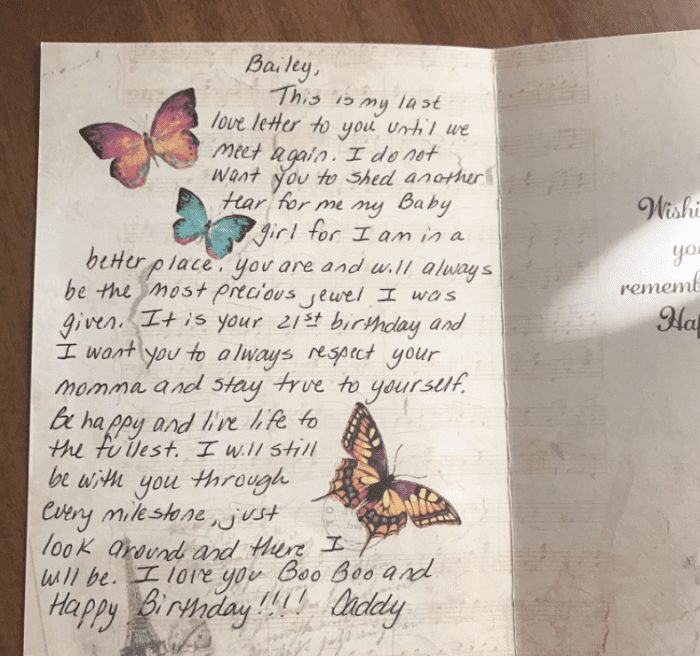 Bailey,
This is my last
love letter to you until we
meet again. I do not
want you to shed another
tear for me my Baby
girl for I am in a
better place. you are and will always
be the most precious jewel I was
given. It is your 21st birthday and
I want you to always respect your
momma and stay true to yourself.
Be happy and live life to
the fullest. I will still
be with you through
every milestone, just
look around and there I
will be. I love you Boo Boo and
Happy Birthday!!!! Daddy
Wishi
yo
rememb
Ha